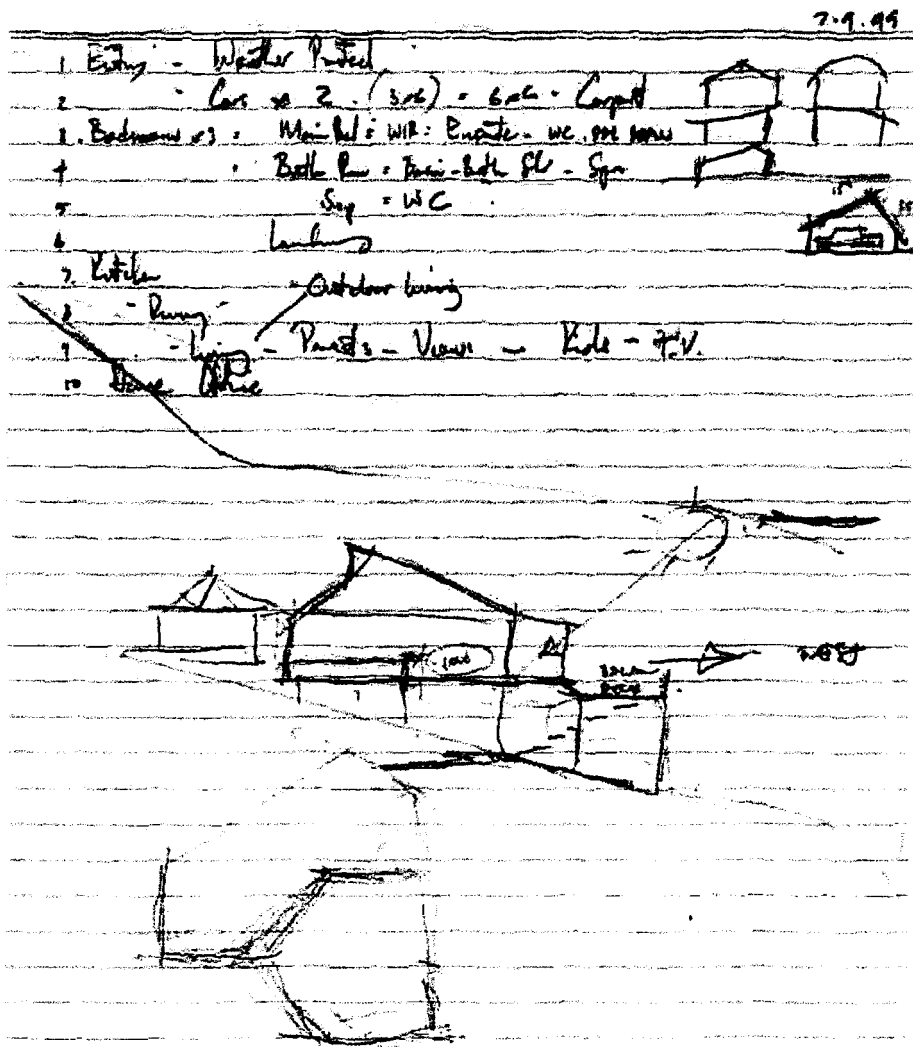 7.9.99
1 Entry - Weather Protect
2 - Cars x 2 . (3x6) = 6x6 - Carport
3. Bedrooms x3 = Main Bed = WIR = Ensuite - WC.
4 Bath Rm = Basin - Bath Shr - Spa
5 Sep = WC
6 Laundry
7. Kitchen
Outdoor living
8 - Dining -
9 - Living - Parents - Views - Kids - T.V.
10 Home Office
15°
WEST